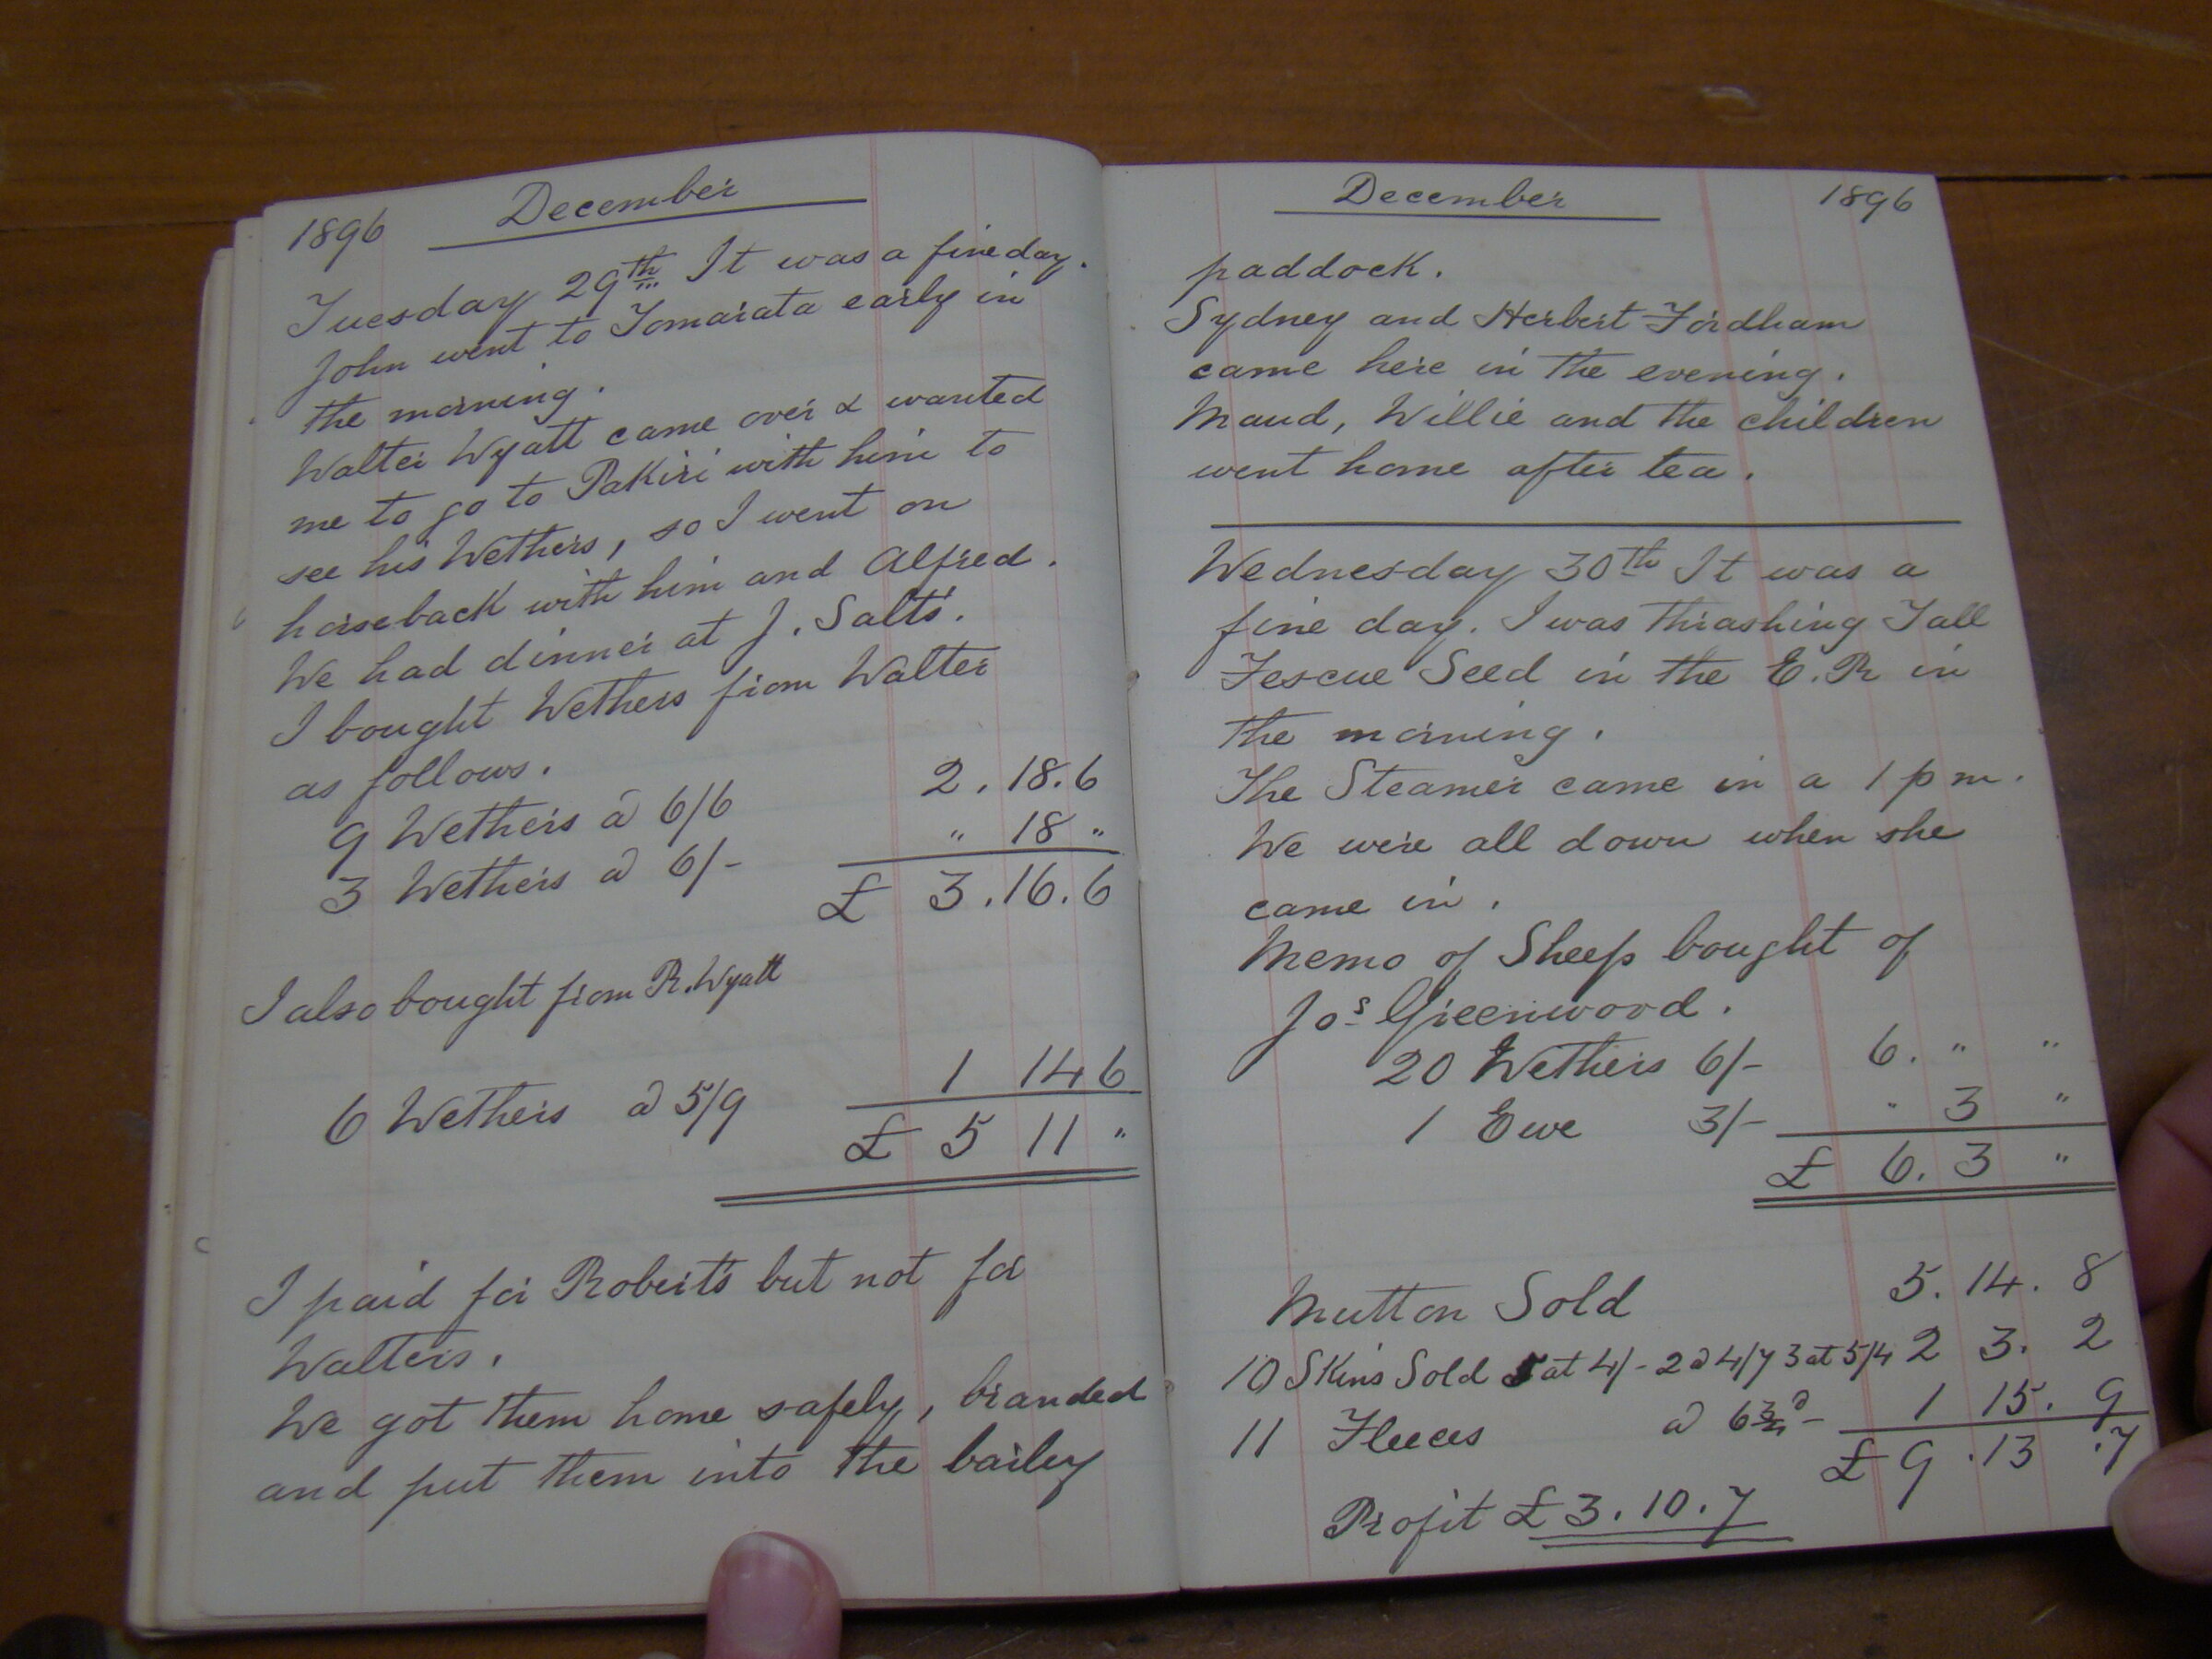 1896 December
Tuesday 29th It was a fine day.
John went to Tomarata early in
the morning.
Walter Wyatt came over & wanted
me to go to Pakiri with him to
see his Wethers, so I went on
horseback with him and Alfred.
We had dinner at J. Salts.
I bought Wethers from Walter
as follows.
9 Wethers @ 6/6 2.18.6
3 Wethers @ 6/- " 18 "
£ 3.16.6
I also bought from R. Wyatt
6 Wethers @ 5/9 1 14 6
£ 5 11 "
I paid for Roberts but not for
Walters.
We got them home safely, branded
and put them into the barley
December 1896
paddock.
Sydney and Herbert Fordham
came here in the evening.
Maud, Willie and the children
went home after tea.
Wednesday 30th It was a
fine day. I was thrashing Tall
Fescue Seed in the E.R in
the morning.
The Steamer came in a 1 p m.
We were all down when she
came in.
Memo of Sheep bought of
Jos Greenwood.
20 Wethers 6/- 6. " "
1 Ewe 3/- " 3 "
£ 6. 3 "
Mutton Sold 5. 14. 8
10 Skins Sold 5 at 4/- 2 @ 4/7 3 at 5/4 2 3. 2
11 Fleeces @ 6¾d- 1 15. 9
£ 9 .13 .7
Profit £ 3.10.7